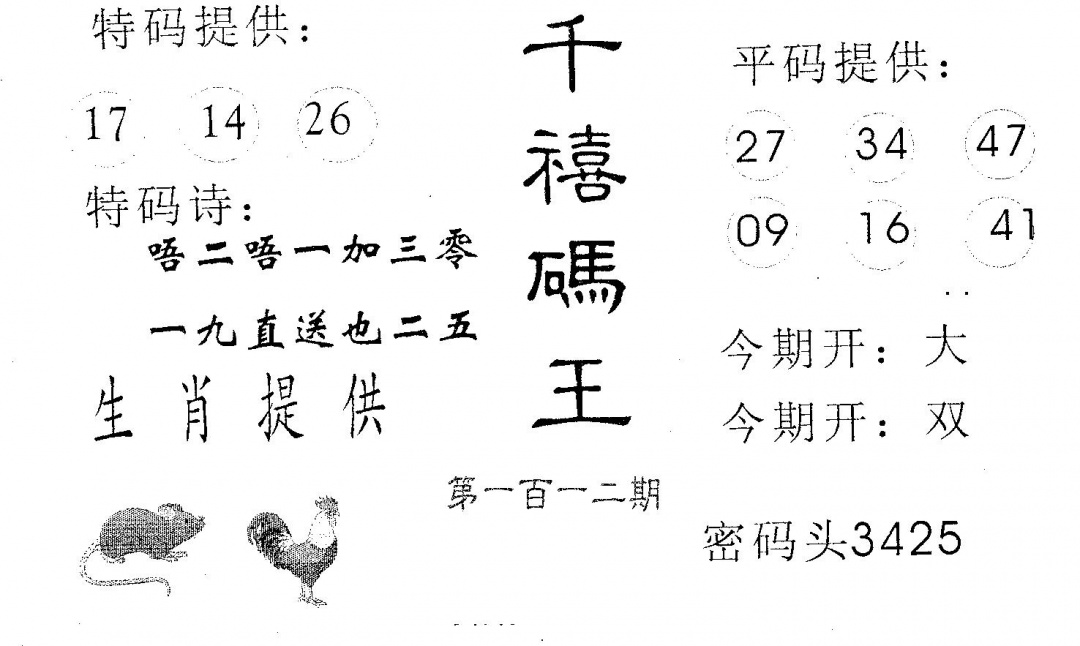 特码提供：
17 14 26
特码诗：
唔二唔一加三零
一九直送也二五
生肖提供
千禧碼王
第一百一二期
平码提供：
27 34 47
09 16 41
今期开：大
今期开：双
密码头3425